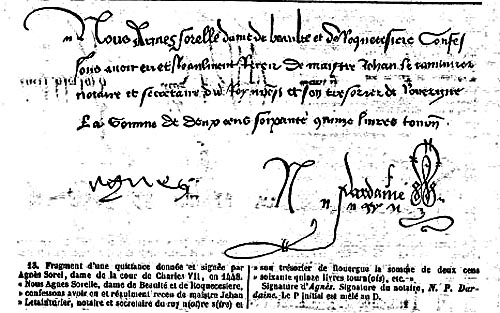 Nous Agnes sorelle dame de beaulte et de Roquecesiere Confes
sons avoir eu et Reaulment Receu de maistre Jehan le
notaire et secretaire du Roy nosseigneur et son tresorier de Rouergue
La somme de deux cens soixante quinze livres tourn
Agnes
N P dardaine
13. Fragment d'une quittance donnée et signée par
Agnès Sorel, dame de la cour de Charles VII, en 1448.
« Nous Agnes Sorelle, dame de Beaulté et de Roquecesiere,
« confessons avoir eu et réaulment receu de maistre Jehan
notaire et secrétaire du roy n(ot)re s(ire) et
» son trésorier de Rouergue la somme de deux cens
» soixante quinze livres tourn(ois), etc. »
Signature d'Agnès. Signature du notaire, N. P. Dar-
daine. Le P initial est mêlé au D.